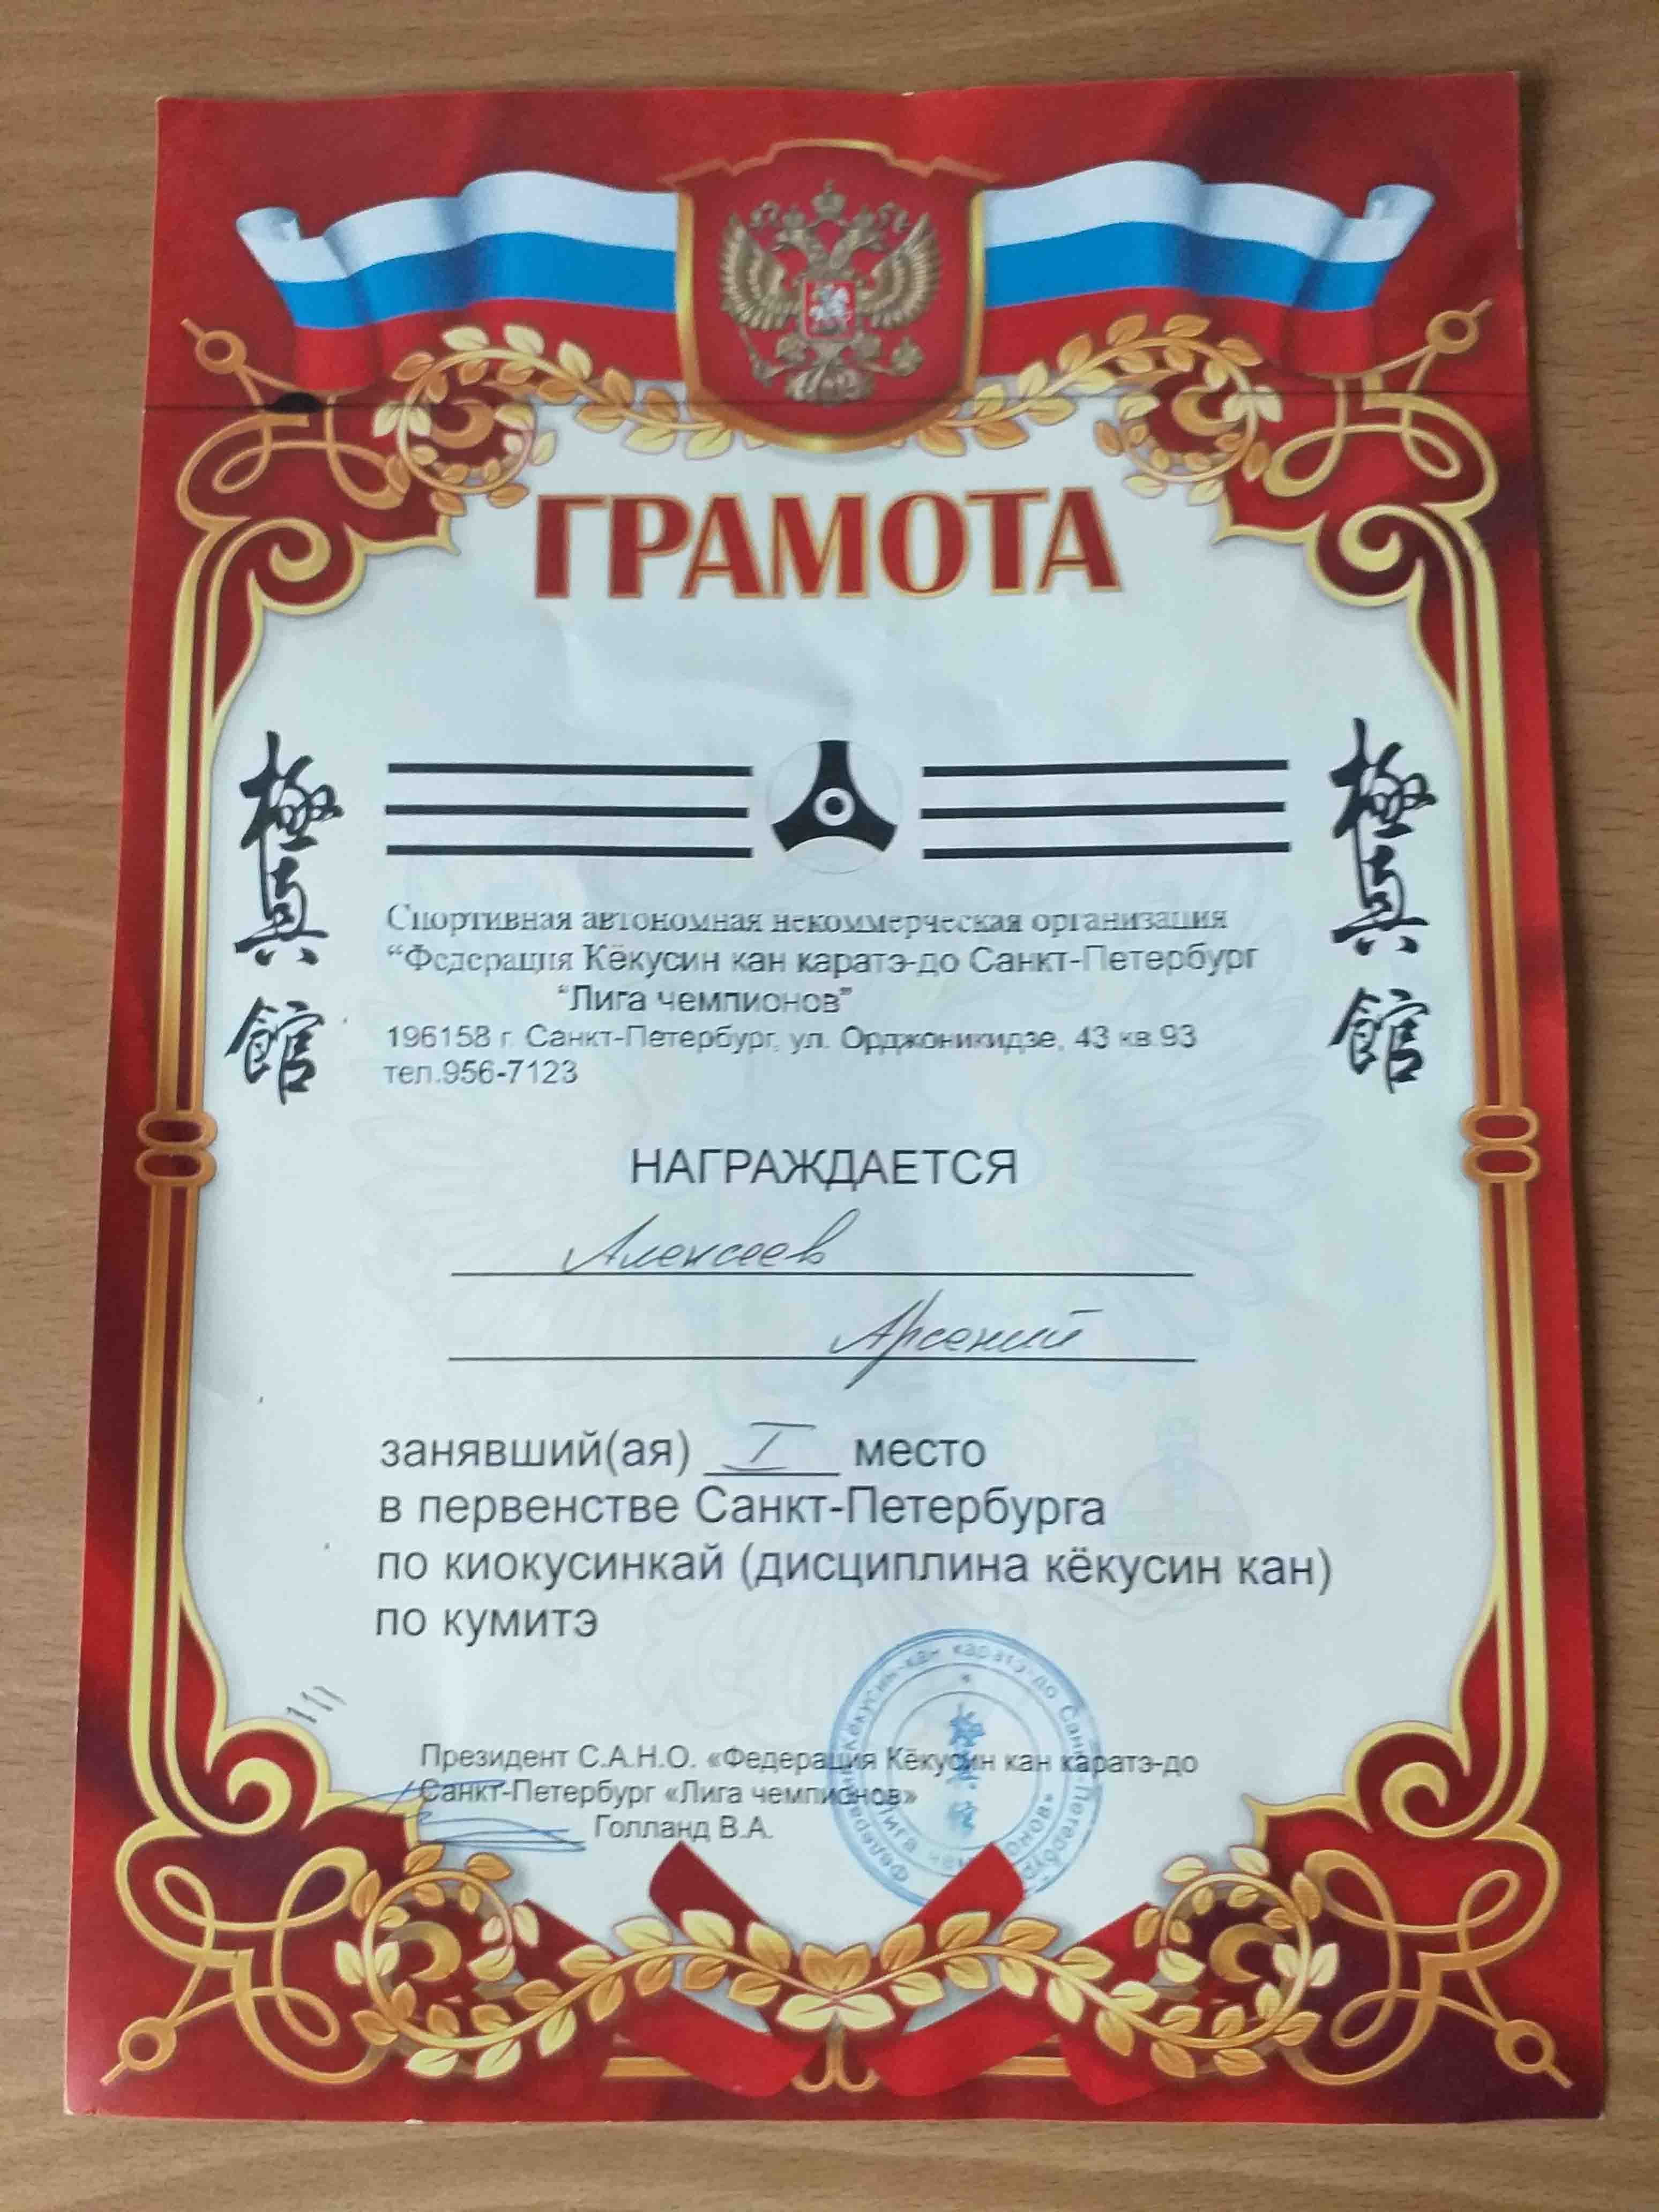 ГРАМОТА
極真館
極真館
Спортивная автономная некоммерческая организация
“Федерация Кёкусин кан каратэ-до Санкт-Петербург
“Лига чемпионов”
196158 г. Санкт-Петербург, ул. Орджоникидзе, 43 кв.93
тел.956-7123
НАГРАЖДАЕТСЯ
Алексеев
Арсений
занявший(ая) I место
в первенстве Санкт-Петербурга
по киокусинкай (дисциплина кёкусин кан)
по кумитэ
Президент С.А.Н.О. «Федерация Кёкусин кан каратэ-до
Санкт-Петербург «Лига чемпионов»
Голланд В.А.
Федерация Кёкусин-кан каратэ-до Санкт-Петербург
极真館
«Лига чемпионов»